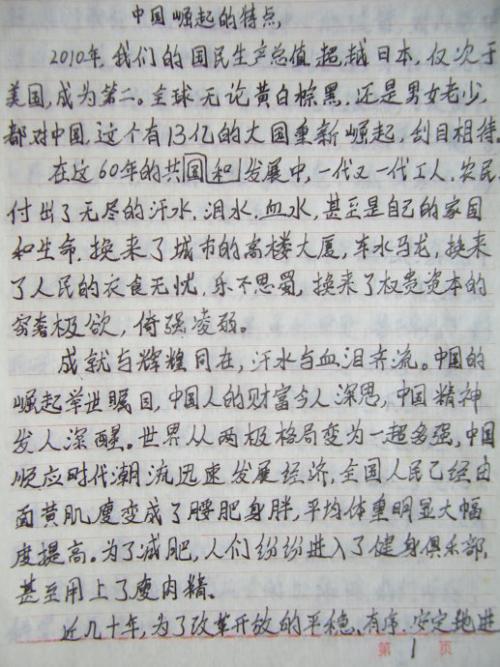 中国崛起的特点
2010年,我们的国民生产总值超越日本,仅次于
美国,成为第二。全球无论黄白棕黑,还是男女老少,
都对中国,这个有13亿的大国重新崛起,刮目相待。
在这60年的共国和发展中,一代又一代工人、农民
付出了无尽的汗水,泪水,血水,甚至是自己的家园
和生命,换来了城市的高楼大厦,车水马龙,换来
了人民的衣食无忧,乐不思蜀,换来了权贵资本的
穷奢极欲,倚强凌弱。
成就与辉煌同在,汗水与血泪齐流。中国的
崛起举世瞩目,中国人的财富令人深思,中国精神
发人深醒。世界从两极格局变为一超多强,中国
顺应时代潮流迅速发展经济,全国人民已经由
面黄肌瘦变成了腰肥身胖,平均体重明显大幅
度提高。为了减肥,人们纷纷进入了健身俱乐部,
甚至用上了瘦肉精。
近几十年,为了改革开放的平稳、有序、安定地进
第 1 页